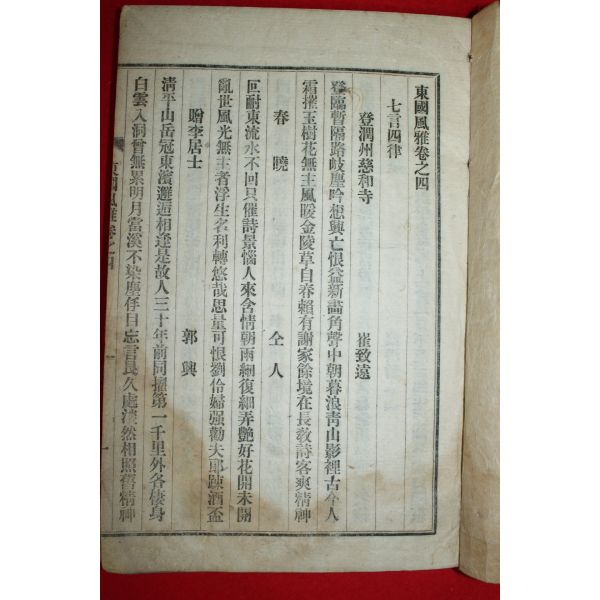 東國風雅卷之四
七言四律
登潤州慈和寺 崔致遠
登臨暫隔路岐塵吟想興亡恨益新畵角聲中朝暮浪靑山影裡古今人
霜摧玉樹花無主風暖金陵草自春賴有謝家餘境在長敎詩客爽精神
春曉 仝人
叵耐東流水不回只催詩景惱人來含情朝雨細復細弄艶好花開未開
亂世風光無主者浮生名利轉悠哉思量可恨劉伶婦强勸夫郞踈酒盃
贈李居士 郭輿
淸平山岳冠東濱邂逅相逢是故人三十年前同擢第一千里外各棲身
白雲入洞曾無累明月當溪不染塵 目 忘言良久處淡然相照舊精神
東國風雅卷之四 一